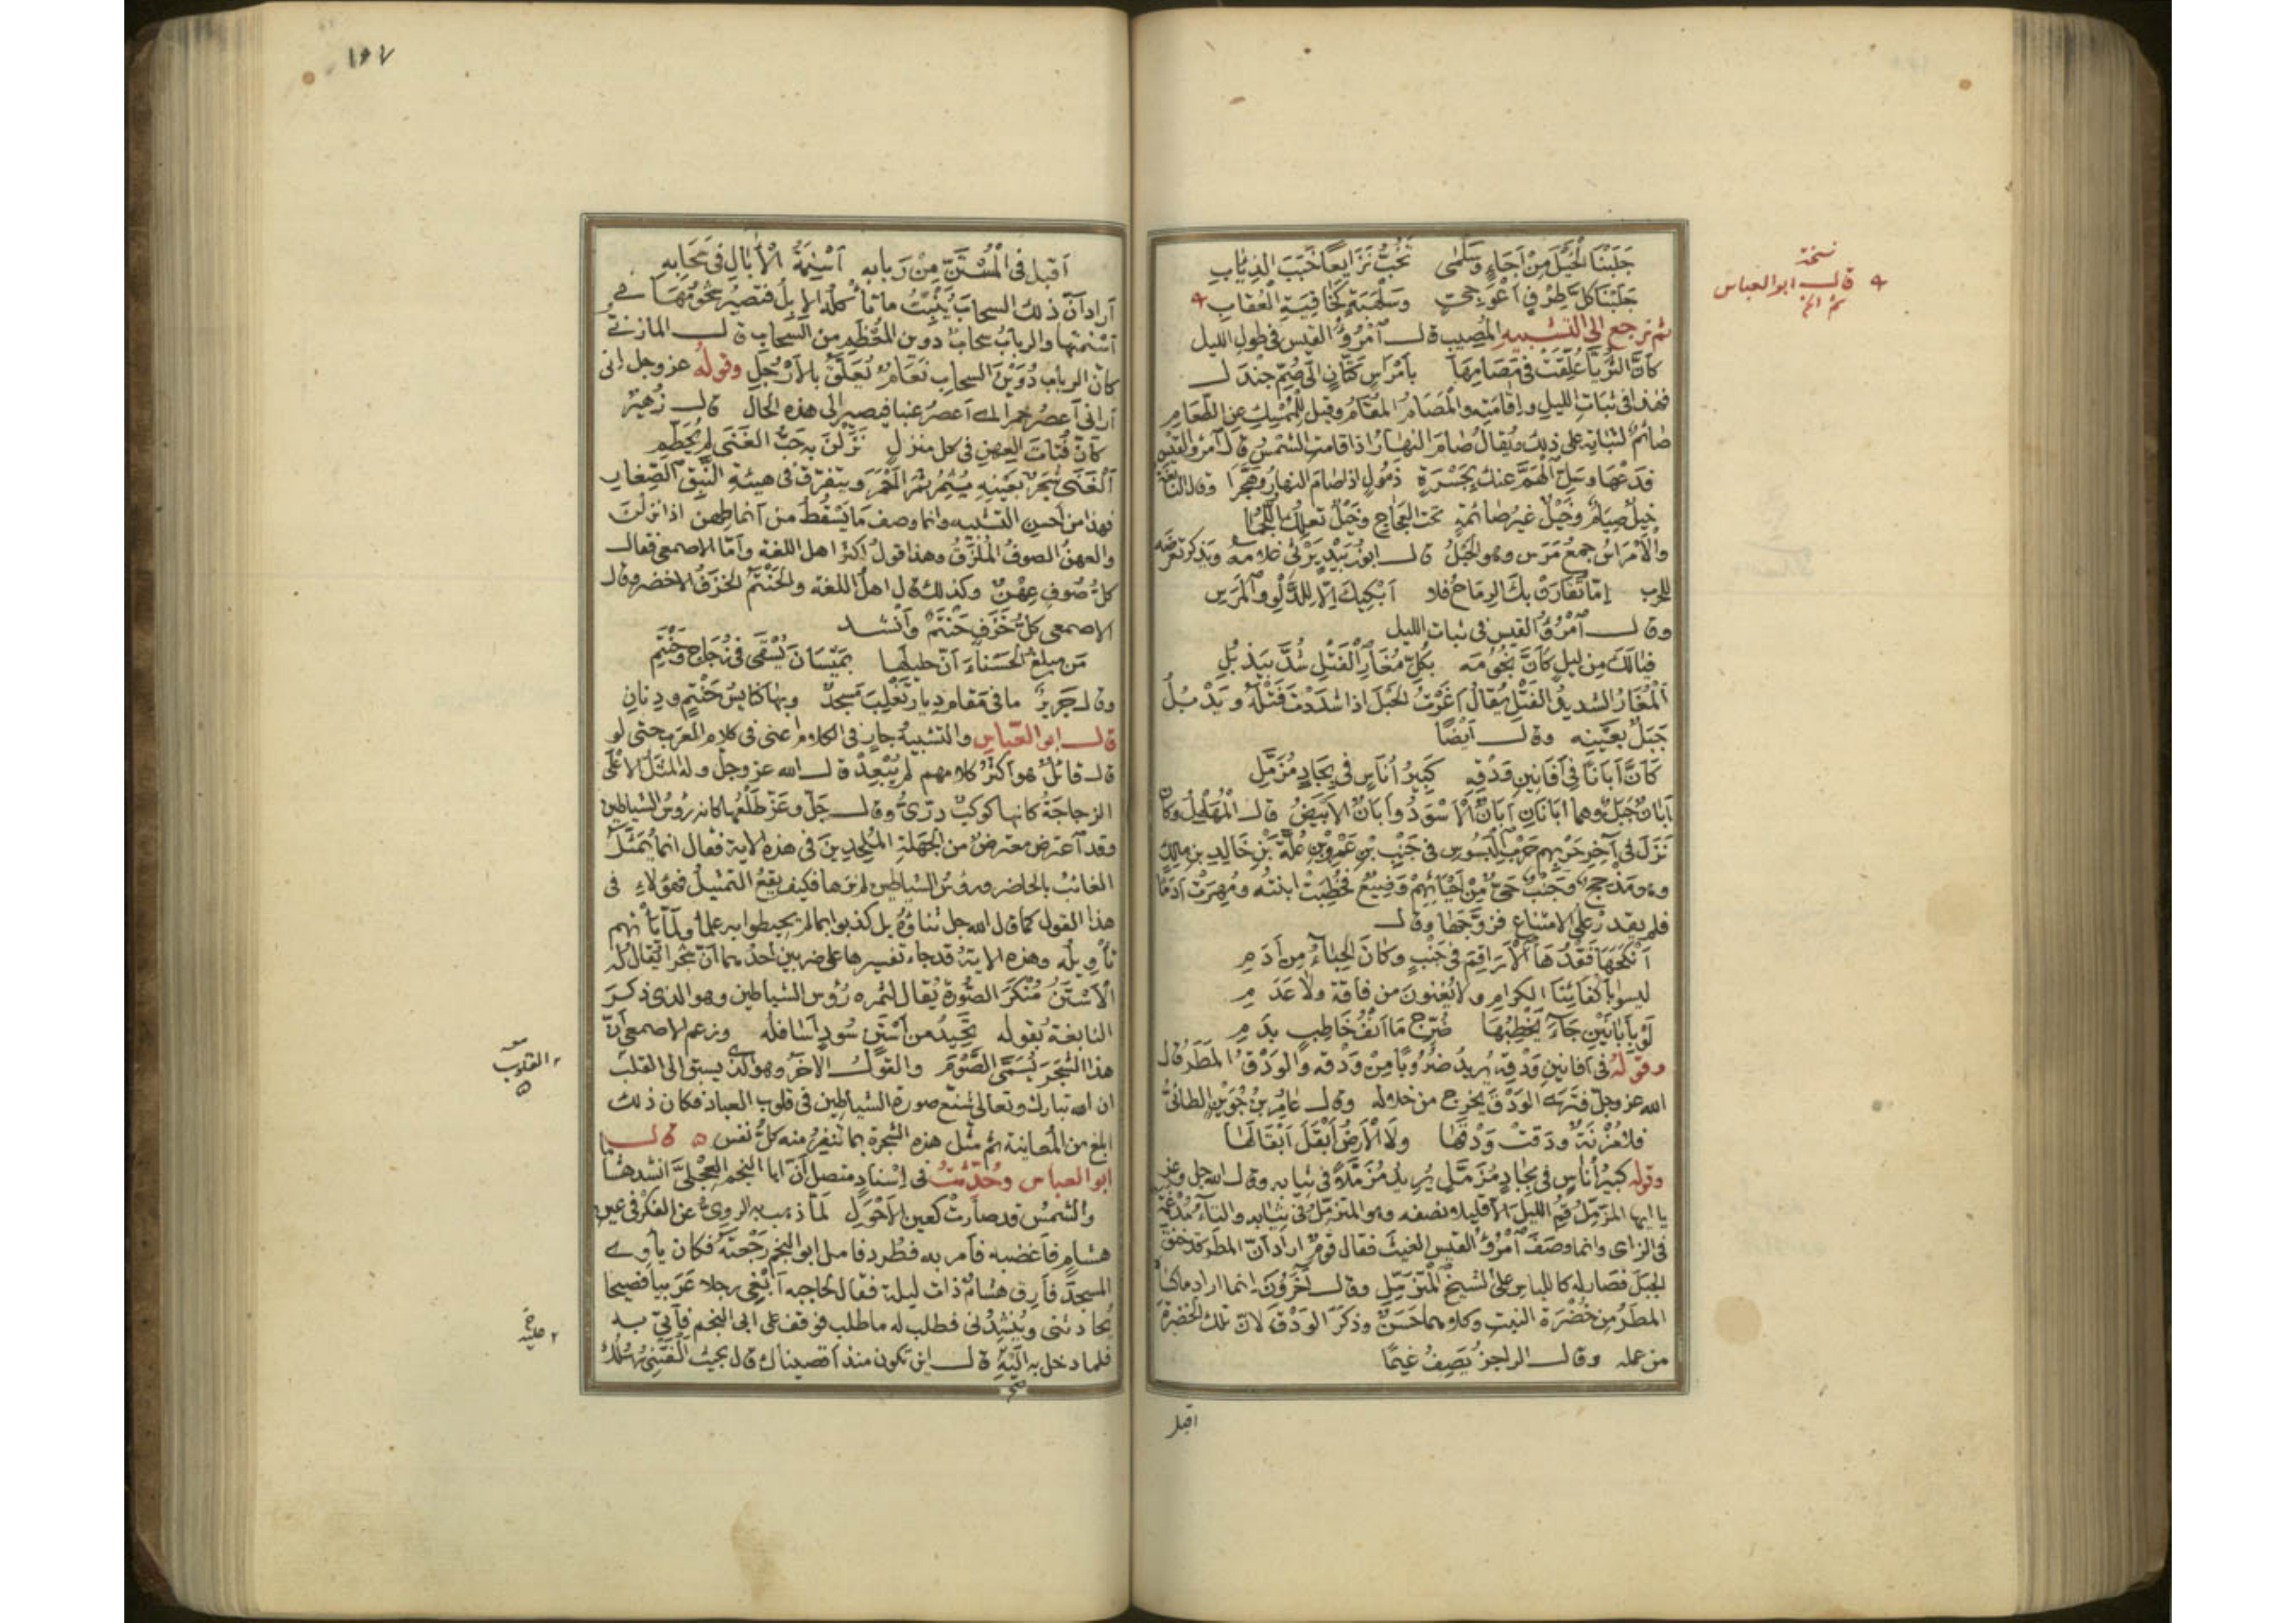 نسخة
قال ابو العباس
ثم الخ
جَلَبْنَا الْخَيْلَ مِنْ اَجَاءٍ وَسَلْمٰى   تَخُبُّ نَزَايِعًا خَبَبَ الذِّئَابِ
جَلَبْنَا كُلَّ طِرْفٍ اَعْوَجِيٍّ   وَسَلْهَبَةٍ كَخَافِيَةِ الْعُقَابِ
ثم نرجع الى التشبيه المُصيب قال آمرُؤُ القيس فى طول الليل
كَاَنَّ الثُّرَيَّا عُلِّقَتْ فى مَصَامِهَا   بِاَمْرَاسِ كَتَّانٍ اِلَى صُمِّ جَنْدَلِ
فهذا فى ثبات الليل واِقامَتِه والْمَصَامُ المُقَامُ وقيل لِلْمُمْسِكِ عن الطَّعَامِ
صَائمٌ لثباتِه على ذلك ويُقالُ صَامَ النهارُ اذا قامت الشمسُ قال آمرؤ القيس
فَدَعْهَا وَسَلِّ الْهَمَّ عَنْكَ بِجَسْرَةٍ   ذَمُولٍ اِذا صَامَ النهارُ وَهَجَّرَا   وقال النابغة
خَيْلٌ صِيَامٌ وَخَيْلٌ غَيرُ صَائمَةٍ   تَحْتَ العَجَاجِ وَخَيْلٌ تَعْلِكُ اللُّجُمَا
والْاَمْرَاسُ جمعُ مَرَسٍ وهو الحَبْلُ قال ابو زُبَيْدٍ يَرْثى غلامه ويذكر تعرّضه
للحرب   اِمَّا تَقَارَنْ بِكَ الرِّمَاحُ فَلَا   اَبْكِيكَ اِلَّا لِلدَّلْوِ وَالْمَرَسِ
وقال آمرُؤُ القيس فى ثبات الليل
فَيَالَكَ مِن لَيلٍ كَاَنَّ نُجُومَه   بِكُلِّ مُغَارِ الْفَتْلِ شُدَّ بِيَذْبُلِ
اَلْمُغَارُ الشديدُ الفَتْلِ يُقَالُ اَغَرْتُ الْحَبْلَ اذا شَدَدْتَ فَتْلَهُ وَيَذْبُلُ
جَبَلٌ بعَيْنِه   وقال اَيْضًا
كَاَنَّ اَبَانًا فى اَفَانِينِ وَدْقِهِ   كَبِيرُ اُنَاسٍ فى بِجَادٍ مُزَمَّلِ
اَبَانٌ جَبَلٌ وهما اَبَانَانِ اَبَانٌ الْاَسْوَدُ وَاَبَانٌ الاَبْيَضُ قال الْمُهَلْهِلُ وكان
نَزَلَ فى آخِرِ حَرْبِهِم حَرْبِ الْبَسُوسِ فى جَنْبِ بْنِ عَمْرِو بْنِ عُلَةَ بْنِ خَالِدِ بنِ مالِكٍ
وهو مَذْحِجٌ وَجَنْبٌ حَىٌّ مِنْ اَحْيَائِهِمْ وَضِيعٌ فَخُطِبَتْ ابنتُه ومُهِرَتْ اَدَمًا
فلم يقدرْ على الامتناع فَزوَّجَهَا وقال
اَنْكَحَهَا فَقْدُهَا الْاَرَاقِمَ فى جَنْبٍ وَكَانَ الْحِبَاءُ مِن اَدَمِ
ليسوا بِاَكْفَائِنَا الكرامِ ولا يُغْنُونَ من فاقةٍ ولا عَدَمِ
لَوْ بِاَبَانَيْنِ جَاءَ يَخْطِبُهَا   ضُرِّجَ مَا اَنْفُ خَاطِبٍ بِدَمِ
وقولُهُ فى اَفَانينِ وَدْقِهِ يُرِيدُ ضُرُوبًا مِنْ وَدْقِه والوَدْقُ المطَرُ قال
الله عز وجل فَتَرَى الوَدْقَ يَخرج من خلاله   وقال عَامِرُ بنُ جُوَيْنٍ الطائىُّ
فَلَا مُزْنَةٌ وَدَقَتْ وَدْقَهَا   وَلَا اَلْاَرضُ اَبْقَلَ اِبْقَالَهَا
وقوله كَبِيرُ اُنَاسٍ فى بِجَادٍ مُزَمَّلِ يُرِيدُ مُزَمَّلًا فى ثيابه وقال الله جل وعز
يا ايها المزَمِّلُ قُمِ الليلَ الا قليلا ونصفه وهو المتزمِّلُ فى ثيابه والتاءُ مُدْغمة
فى الزاى وانما وَصَفَ آمْرُؤُ القيس الغيثَ فقال قومٌ ارادَ اَنَّ المطَر قد خنق
الجَبَلَ فَصَار له كاللِّباس على الشيخِ المتزَمِّلِ وقال آخَرُونَ انما اراد ماكسا
المطَرُ مِن خُضْرَةِ النبتِ وكلاهما حَسَنٌ وذكَرَ الوَدْقَ لاَنّ تلك الخضرةَ
من عمله   وقال الراجزُ يَصِفُ غَيمًا
اقبل
١٩٧
اَقبل فى الْمُسْتَنِّ مِنْ رَبَابِه   اَسْنِمَةُ الْآبَالِ فى سَحَابِهِ
اَرادَ اَنَّ ذلك السحابَ يُنْبِتُ ما تأكُلُهُ الابِلُ فتصيرُ شُحُومُهَا فى
اَسْنمتِها والربابُ سحابٌ دوين المُعْظَمِ من السحاب قال المازنى
كاَنّ الربابَ دُوَيْنَ السحابِ نَعَامٌ تُعَلَّقُ بالاَرْجُلِ وقولُهُ عز وجل انى
اَرانى اَعصرُ خمرا اى اَعصرُ عنبا فيصير الى هذه الحال   قال زُهَيْرٌ
كاَنّ فُتَاتَ العِهنِ فى كل منزلٍ   نَزَلْنَ بِهِ حَبُّ الفَنَى لم يُحَطَّمِ
اَلْفَنَى شجَرٌ بعَينِهِ يُثمِرُ ثَمَرًا اَحْمَرَ ويتفرّق فى هيئةِ النَّبِقِ الصِّغَارِ
فهذا من اَحسن التشبيه وانما وصف مَا يَسْقُطُ من اَنماطِهنّ اذا نزلن
والعِهنُ الصوفُ المُلوَّنُ وهذا قولُ اكثر اهل اللغة واَمّا الاصمعى فقال
كلُّ صُوفٍ عِهْنٌ وكذلك قال اهلُ اللغة والحَنْتَمُ الخزَفُ الاخضر وقال
الاصمعى كلُّ خَزَفٍ حَنْتَمٌ وَاَنْشد
مَن مبلغُ الْحَسْنَاءَ اَنَّ حليلَهَا   بمَيْسَانَ يُسْقَى فى زُجَاجٍ وَحَنْتَمِ
وقال جَرِيرٌ   ما فى مَقامِ دِيارِ تَغْلِبَ مَسجدٌ   وبها كنائسُ حَنْتَمٍ ودِنانِ
قال ابو العَبّاس والتشبيهُ جارٍ فى الكلام اعنى فى كلام العَرب حتى لو
قال قائلٌ هو اَكثرُ كلامهم لم يُبْعِدْ قال الله عز وجل وله المثَلُ الاعْلَى
الزجاجَةُ كانها كوكبٌ درّىٌّ وقال جَلّ وعَزّ طَلْعُها كانه رؤسُ الشياطين
وقد آعترض معترضٌ من الجَهَلةِ المُلْحِدِينَ فى هذه الاية فقال انما يُمَثَّلُ
الغائبُ بالحاضر ورؤسُ الشياطين لم نرها فكيف يقعُ التمثيلُ فهؤلاءِ فى
هذا القول كما قال الله جل ثناؤهُ بل كذبوا بما لم يحيطوا به علما ولَمَّا يأتهم
تأويلُه وهذه الايةُ قد جاء تفسيرها على ضربين اَحدُهما اَنّ شجَرا يُقالُ له
الاَسْتَنُ مُنْكَرُ الصُّورَةِ يُقال لثمره رُؤس الشياطين وهو الذى ذكرَ
النابغةُ بقوله   تَحِيدُ من اَسْتَنٍ سُودٍ اَسَافلُه   وزعم الاصمعى اَنّ
هذا الشجرَ يُسَمَّى الصَّوْمَ والقولُ الآخَرُ وهو الذى يسبق الى القلب
القلوب
ان الله تبارك وتعالى شنّع صورةَ الشياطين فى قلوب العبادِ فكان ذلك
ابلغ من المُعاينة ثم مثّل هذه الشجرةَ بما تنفرُ منه كلُّ نفس   قال
ابو العباس وحُدِّثْتُ فى اِسْنادٍ متصل اَنّ ابا النجم العِجْلىَّ انشد هشاما
والشمسُ قد صارَتْ كعينِ الاَحْوَلِ   لمّا ذهب به الروىُّ عن الفكر فى عين
هشامٍ فاَغضبه فاَمر به فطُرد فاَمل ابو النجم رَجْعتَهُ فكان يأوى
المسجدَ فاَرِقَ هشامٌ ذات ليلة فقال لحاجبه اَبْغِنى رجلا عَرَبيا فصيحا
يُحادثنى ويُنشِدُنى فطلب له ما طلب فوقف على ابى النجم فاَتى به
فلما دخل به اليْهِ قال اين تكون منذ اَقصيناك قال بحيث اَلْفَتْنِى رُسُلُكَ